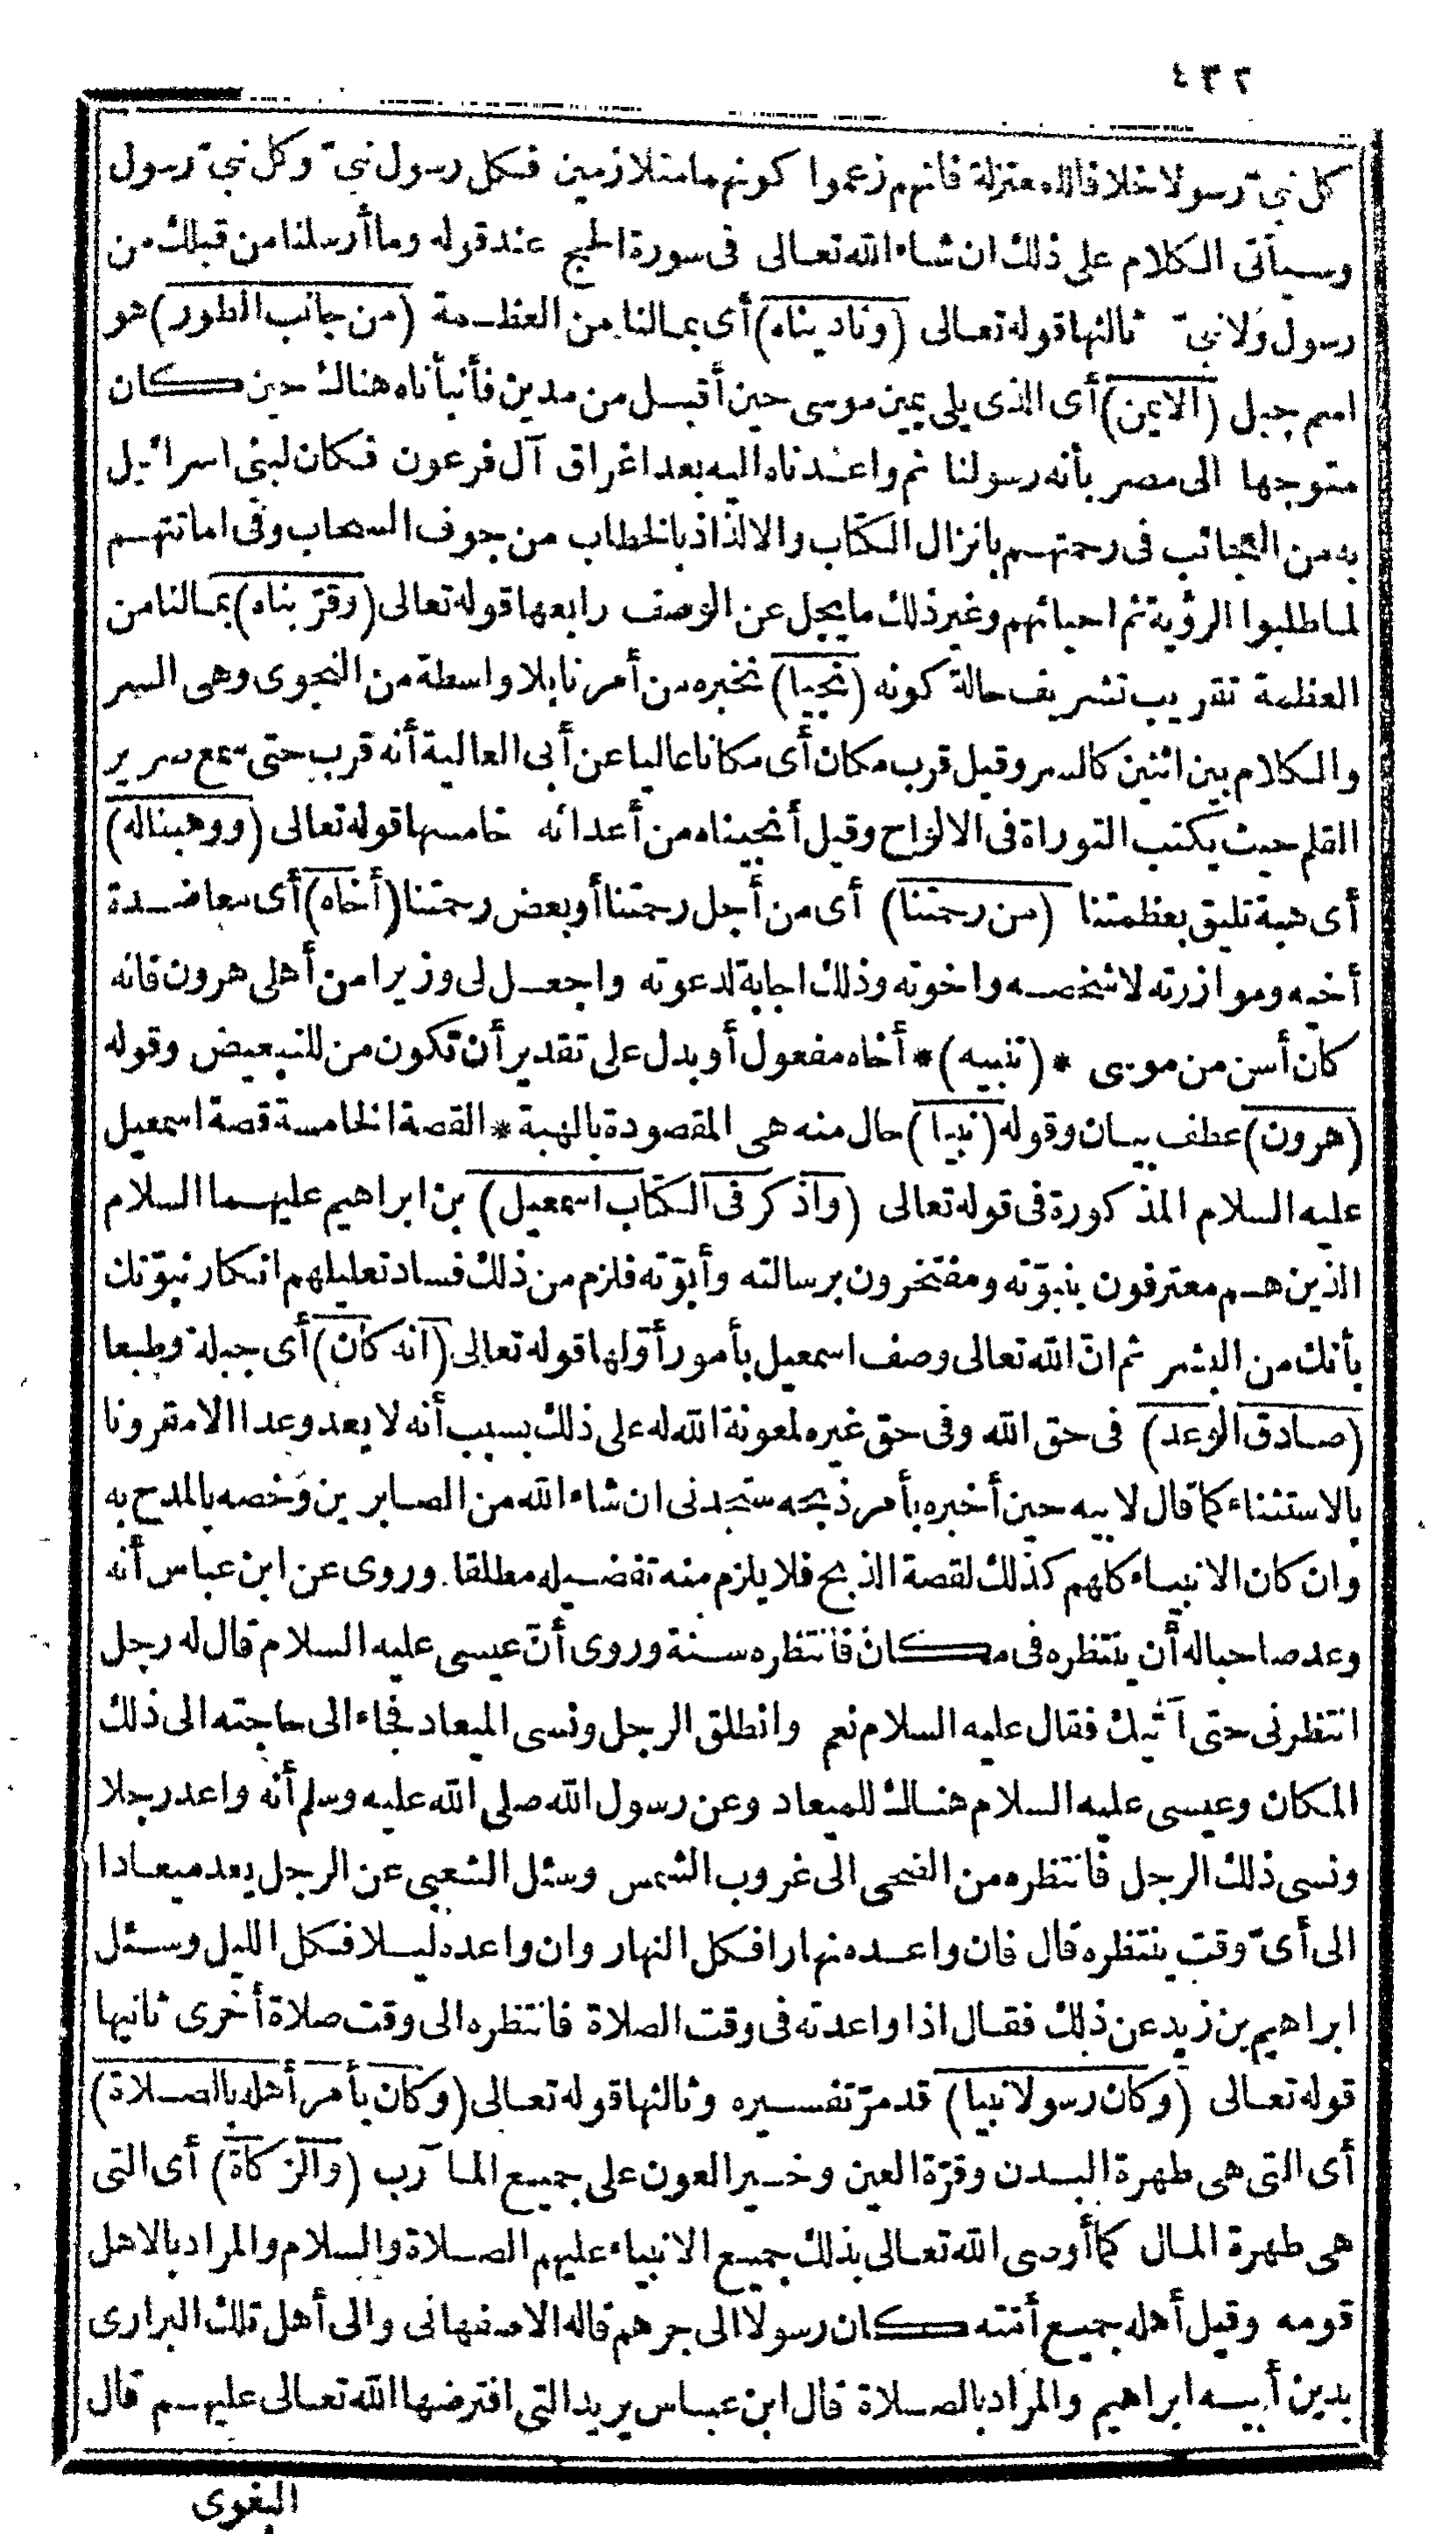 ٤٣٢
كل نبيّ رسولا خلافا للمعتزلة فانهم زعموا كونهما متلازمين فكل رسول نبيّ وكل نبيّ رسول
وسيأتى الكلام على ذلك ان شاء الله تعالى فى سورة الحج عند قوله وما أرسلنا من قبلك من
رسول ولا نبيّ ثالثها قوله تعالى (وناديناه) أى بمالنا من العظمة (من جانب الطور) هو
اسم جبل (الايمن) أى الذى يلى يمين موسى حين أقبل من مدين فأنبأناه هناك حين كان
متوجها الى مصر بأنه رسولنا ثم واعدناه اليه بعد اغراق آل فرعون فكان لبنى اسرائيل
به من العجائب فى رحمتهم بانزال الكتاب والالذاذ بالخطاب من جوف السحاب وفى اماتتهم
لما طلبوا الرؤية ثم احيائهم وغير ذلك ما يجل عن الوصف رابعها قوله تعالى (وقرّبناه) بمالنا من
العظمة تقريب تشريف حالة كونه (نجيا) نخبره من أمرنا بلا واسطة من النجوى وهى السر
والكلام بين اثنين كالسر وقيل قرب مكان أى مكانا عاليا عن أبى العالية أنه قرب حتى سمع صرير
القلم حيث يكتب التوراة فى الالواح وقيل أنجيناه من أعدائه خامسها قوله تعالى (ووهبنا له)
أى هبة تليق بعظمتنا (من رحمتنا) أى من أجل رحمتنا أو بعض رحمتنا (أخاه) أى معاضدة
أخيه وموازرته لا شخصه واخوته وذلك اجابة لدعوته واجعل لى وزيرا من أهلى هرون فانه
كان أسن من موسى * (تنبيه) * أخاه مفعول أو بدل على تقدير أن تكون من للتبعيض وقوله
(هرون) عطف بيان وقوله (نبيا) حال منه هى المقصودة بالهبة * القصة الخامسة قصة اسمعيل
عليه السلام المذكورة فى قوله تعالى (واذكر فى الكتاب اسمعيل) بن ابراهيم عليهما السلام
الذين هم معترفون بنبوّته ومفتخرون برسالته وأبوّته فلزم من ذلك فساد تعليلهم انكار نبوّتك
بأنك من البشر ثم انّ الله تعالى وصف اسمعيل بأمور أوّلها قوله تعالى (انه كان) أى جبلة وطبعا
(صادق الوعد) فى حق الله وفى حق غيره لمعونة الله له على ذلك بسبب أنه لا يعد وعدا الا مقرونا
بالاستثناء كما قال لابيه حين أخبره بأمر ذبحه ستجدنى ان شاء الله من الصابرين وخصه بالمدح به
وان كان الانبياء كلهم كذلك لقصة الذبح فلا يلزم منه تفضيله مطلقا. وروى عن ابن عباس أنه
وعد صاحبا له أن ينتظره فى مكان فانتظره سنة وروى أنّ عيسى عليه السلام قال له رجل
انتظرنى حتى آتيك فقال عليه السلام نعم وانطلق الرجل ونسى الميعاد فجاء الى حاجته الى ذلك
المكان وعيسى عليه السلام هنالك للميعاد وعن رسول الله صلى الله عليه وسلم أنه واعد رجلا
ونسى ذلك الرجل فانتظره من الضحى الى غروب الشمس وسئل الشعبى عن الرجل يعد ميعادا
الى أىّ وقت ينتظره قال فان واعده نهارا فكل النهار وان واعده ليلا فكل الليل وسئل
ابراهيم بن زيد عن ذلك فقال اذا واعدته فى وقت الصلاة فانتظره الى وقت صلاة أخرى ثانيها
قوله تعالى (وكان رسولا نبيا) قد مرّ تفسيره وثالثها قوله تعالى (وكان يأمر أهله بالصلاة)
أى التى هى طهرة البدن وقرّة العين وخير العون على جميع المآرب (والزكاة) أى التى
هى طهرة المال كما أوصى الله تعالى بذلك جميع الانبياء عليهم الصلاة والسلام والمراد بالاهل
قومه وقيل أهله جميع أمّته كان رسولا الى جرهم قاله الاصفهانى والى أهل تلك البرارى
بدين أبيه ابراهيم والمراد بالصلاة قال ابن عباس يريد التى افترضها الله تعالى عليهم قال
البغوى